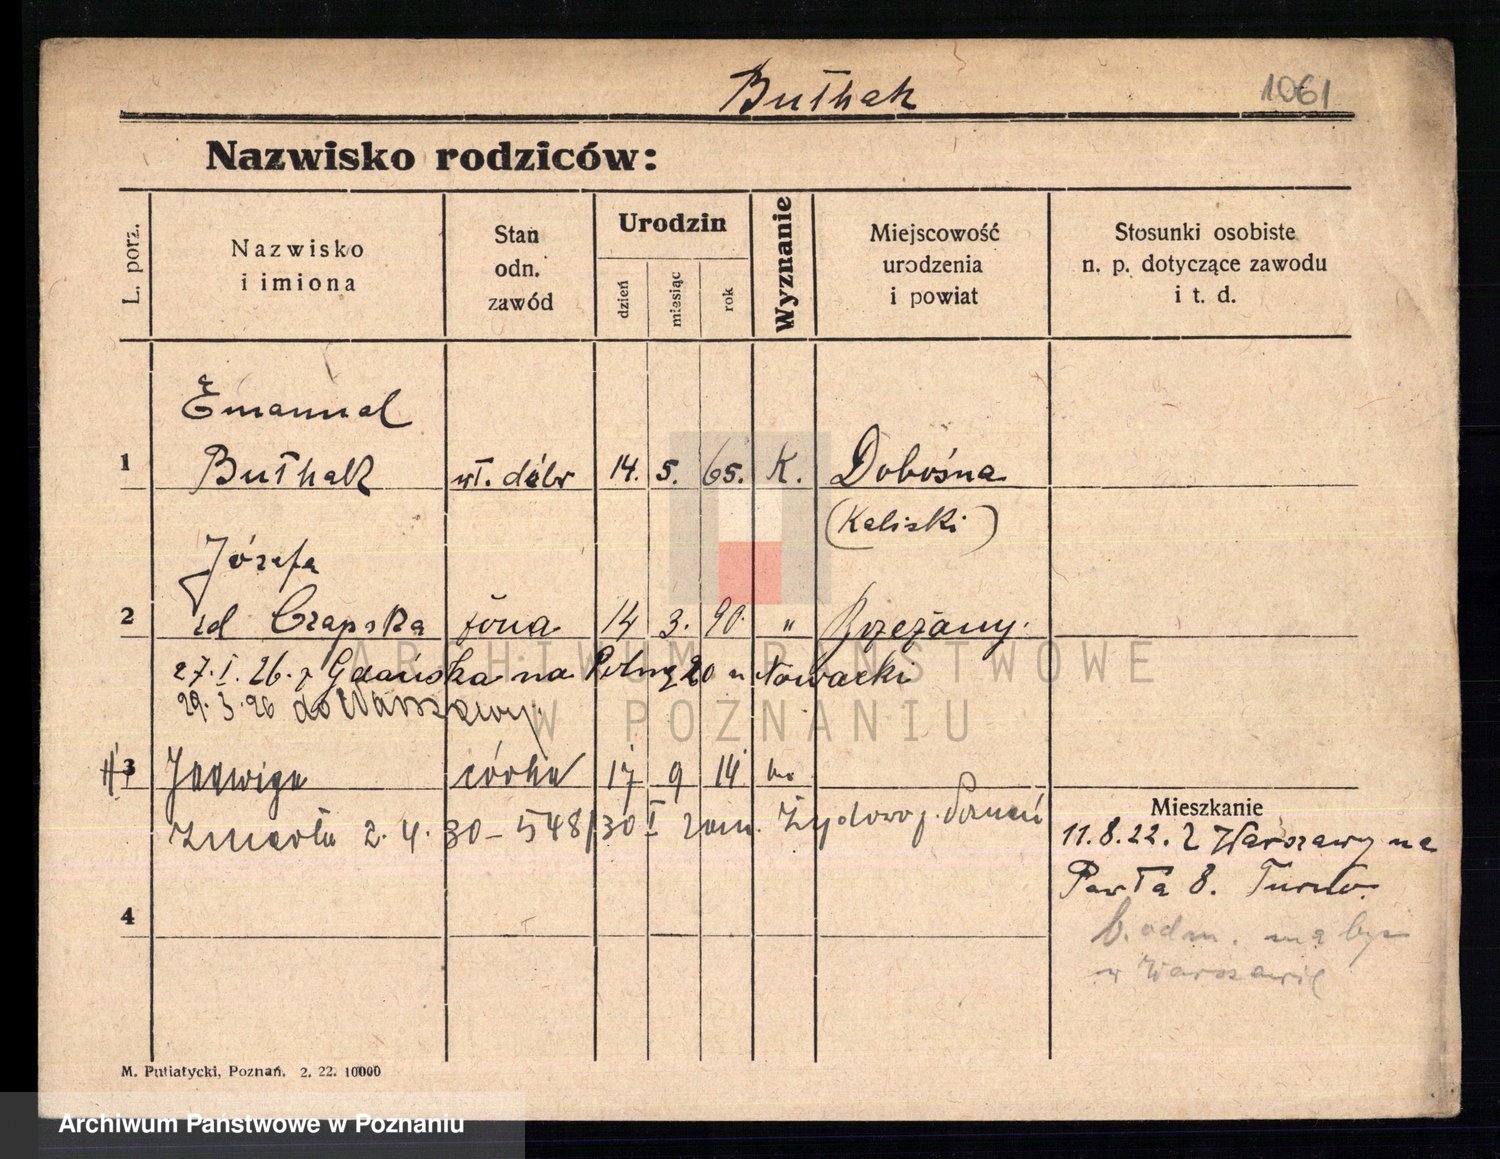 Bułhak
1061
Nazwisko rodziców:
L. porz.
Nazwisko
i imiona
Stan
odn.
zawód
Urodzin
dzień
miesiąc
rok
Wyznanie
Miejscowość
urodzenia
i powiat
Stosunki osobiste
n. p. dotyczące zawodu
i t. d.
Emanuel
1 Bułhak wł. dóbr 14. 5. 65. K. Dobośna
(Kaliski)
Józefa
2 zd Czapska żona 14 3. 90. " Brzeżany.
27. I. 26. z Gdańska na 20 u Nowacki
29. 3. 26 do Warszawy.
3 Jadwiga córka 17 9 14
Zmarła 2. 4. 30 - 548/30 I zam. Żydowo p. Poznań
Mieszkanie
11. 8. 22. Z Warszawy na
Pawła 8. Turno.
4
b. odm. ma być
w Warszawie
M. Putiatycki, Poznań. 2. 22. 10000
ARCHIWUM PAŃSTWOWE
W POZNANIU
Archiwum Państwowe w Poznaniu